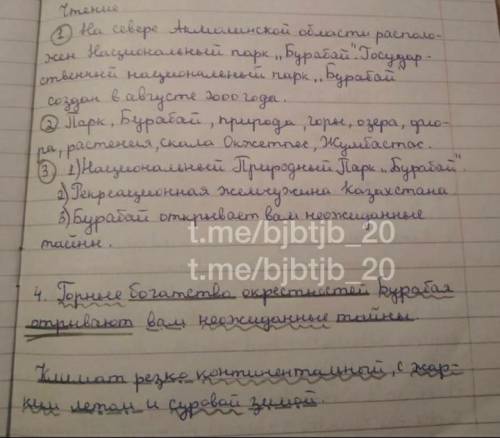 Чтение
① На севере Акмолинской области располо-
жен Национальный парк „Бурабай". Государ-
ственный национальный парк „Бурабай
создан в августе 2000 года.
② Парк, Бурабай, природа, горы, озера, фло-
ра, растения, скала Окжетпес, Жумбастас.
③ 1) Национальный Природный Парк „Бурабай".
2) Рекреационная жемчужина Казахстана
3) Бурабай открывает вам неожиданные
тайны.
t.me/bjbtjb_20
t.me/bjbtjb_20
4. Горные богатства окрестностей Бурабая
отрывают вам неожиданные тайны.
Климат резко континентальный, с жар-
ким летом и суровой зимой.